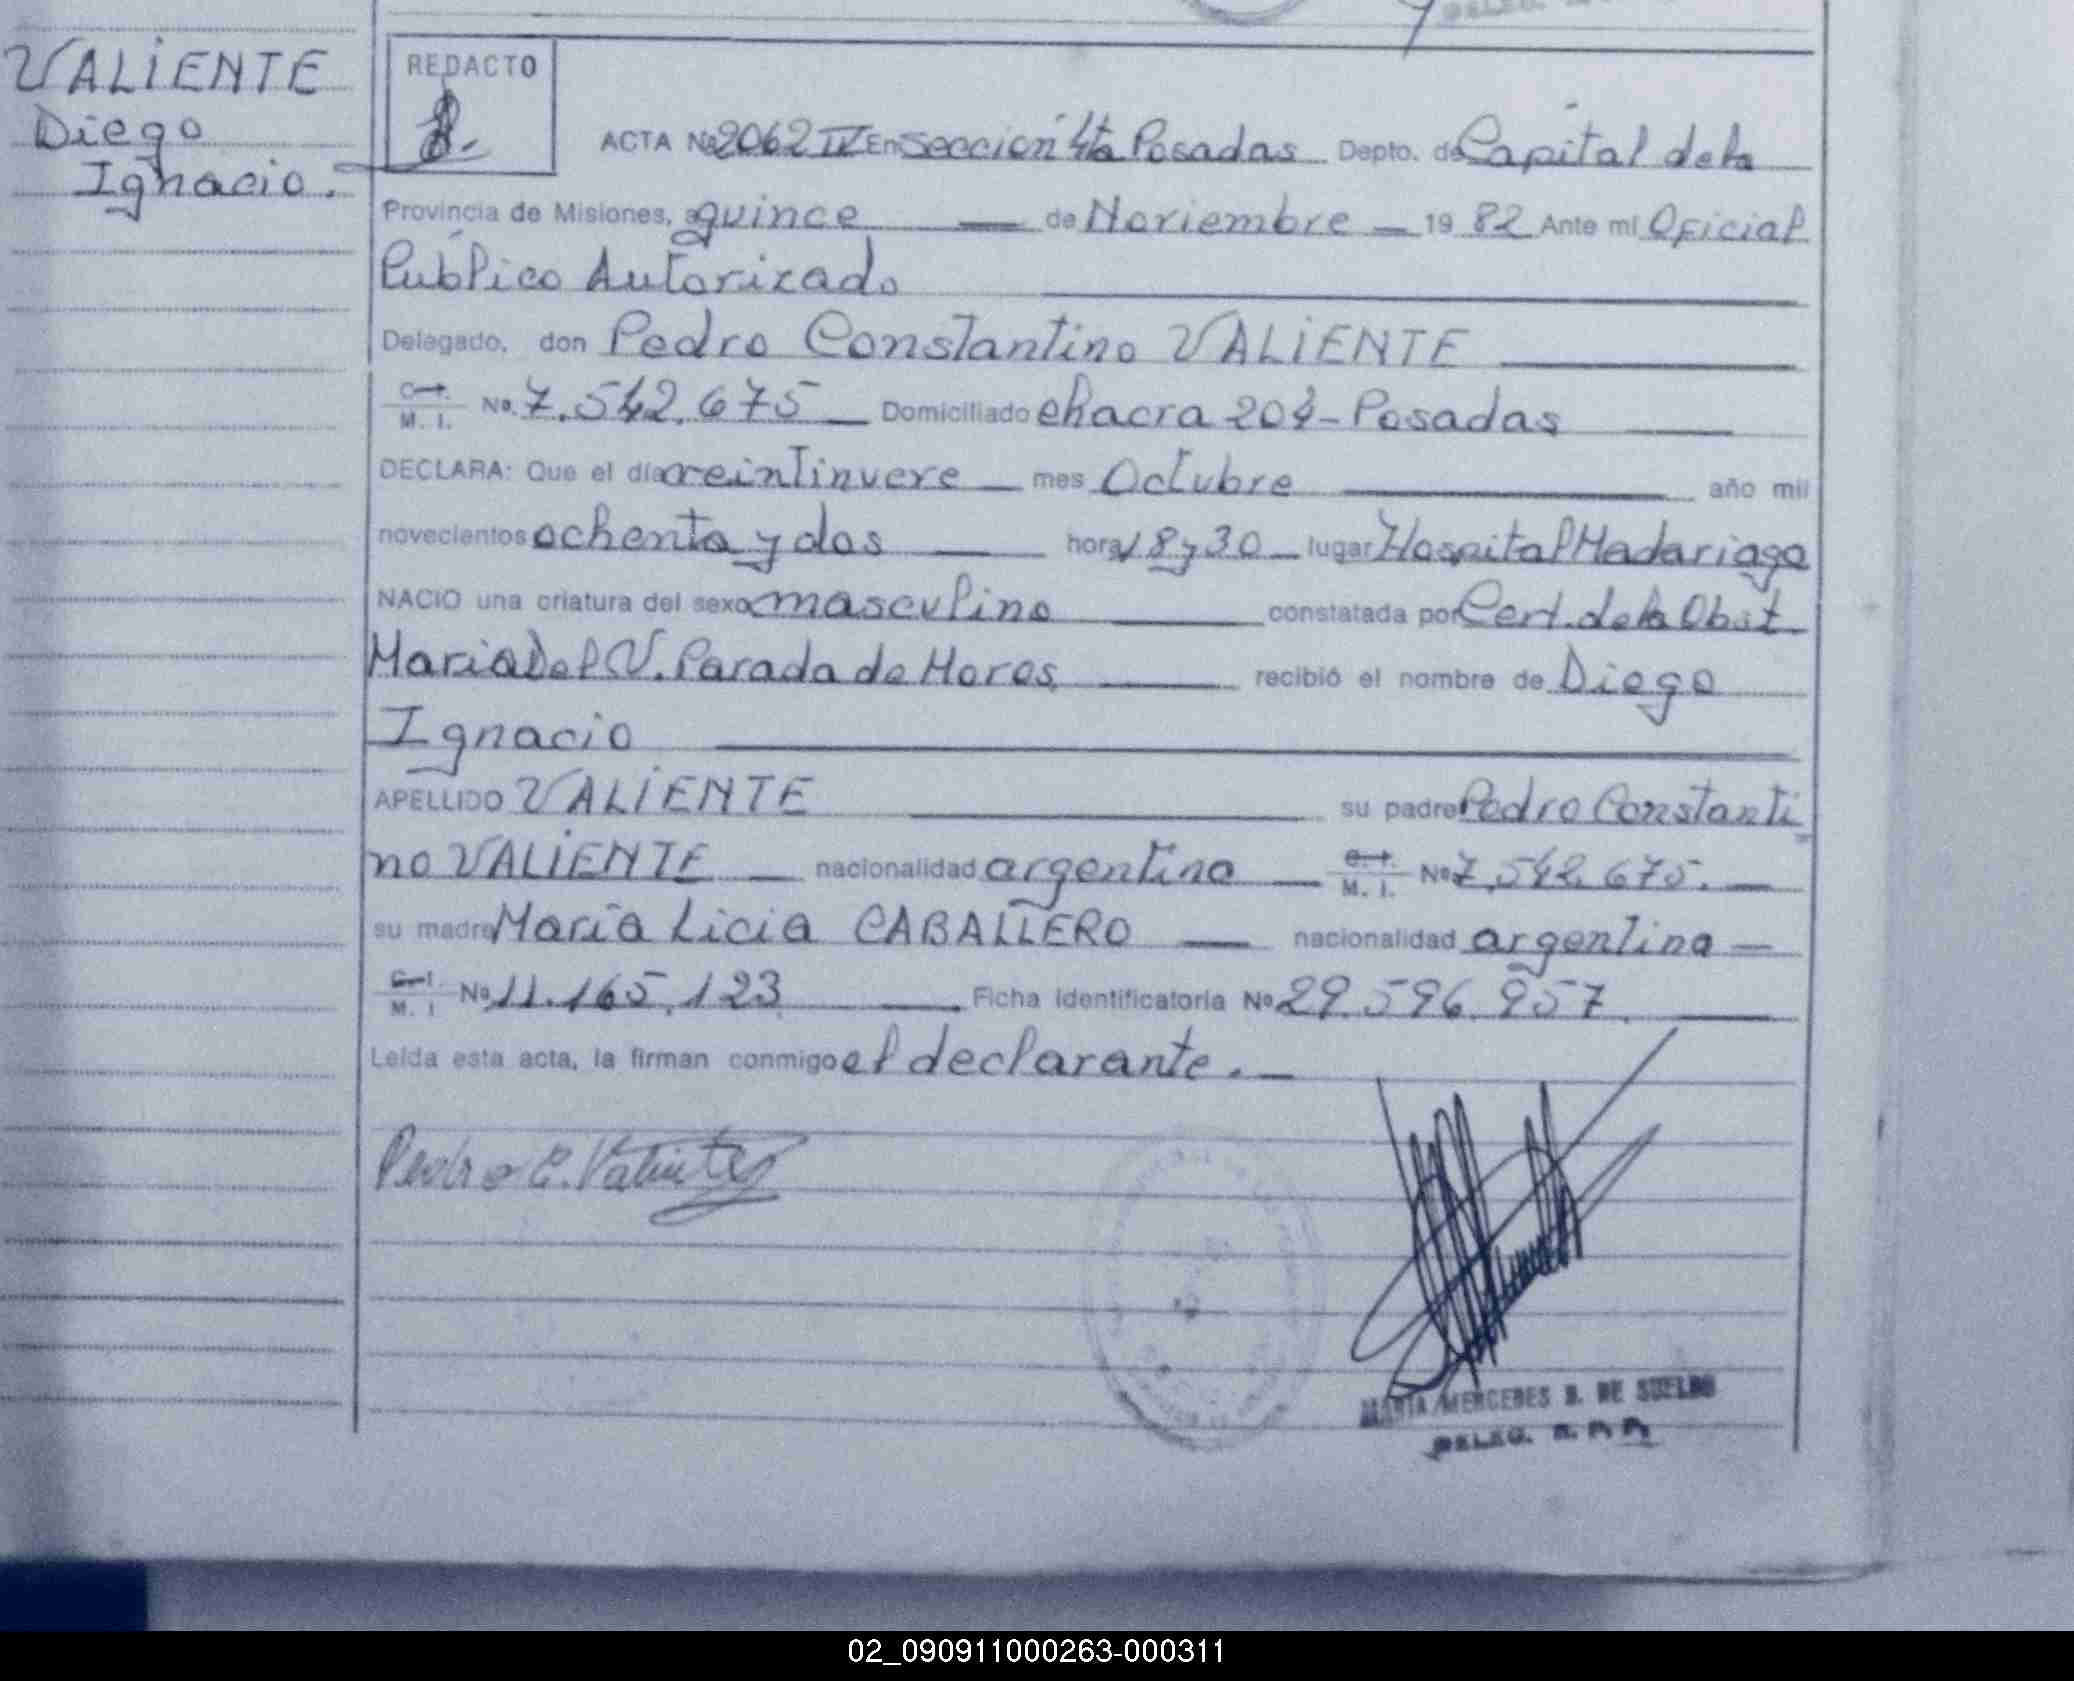 VALIENTE
Diego
Ignacio.
REDACTO
ACTA No 2062 IV En Sección 4ta Posadas Depto. de Capital de la
Provincia de Misiones, a quince de Noviembre 1982 Ante mi Oficial
Público Autorizado
Delegado, don Pedro Constantino VALIENTE
C. I.
M. I. No. 7.542.675 Domiciliado chacra 204 - Posadas
DECLARA: Que el día veintinueve mes Octubre año mil
novecientos ochenta y dos hora 18 y 30 lugar Hospital Madariaga
NACIO una criatura del sexo masculino constatada por Cert. de la Obst
Maria Del V. Parada de Mores recibió el nombre de Diego
Ignacio
APELLIDO VALIENTE su padre Pedro Constanti
no VALIENTE nacionalidad argentina C. I.
M. I. No 7.542.675.
su madre María Licia CABALLERO nacionalidad argentina
C. I.
M. I No 11.165.123 Ficha identificatoria No 29.596.957.
Leída esta acta, la firman conmigo el declarante.
Pedro C. Valiente
MARIA MERCEDES B. DE SUELDO
DELEG.
02_090911000263-000311